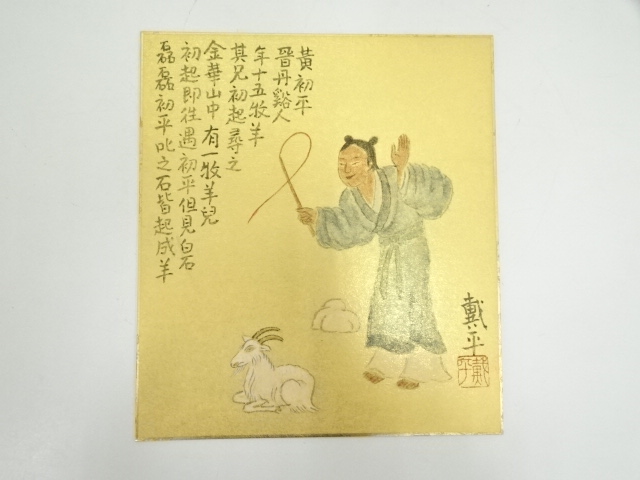 黃初平
晉丹谿人
年十五牧羊
其兄初起尋之
金華山中有一牧羊兒
初起即往遇初平但見白石
磊磊初平叱之石皆起成羊
戴平
戴平